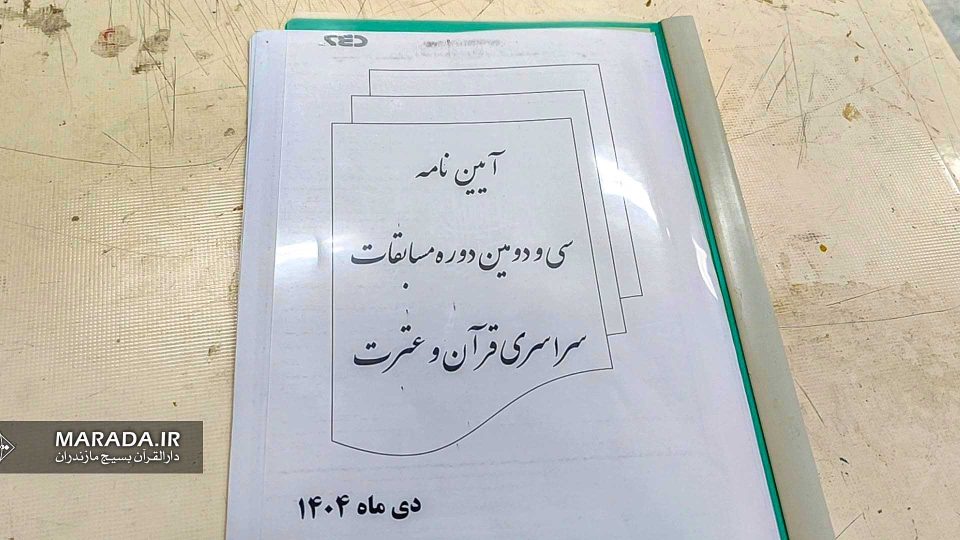 آیین نامه
سی و دومین دوره مسابقات
سراسری قرآن و عترت
دی ماه ۱۴۰۴
MARADA.IR
دارالقرآن بسیج مازندران